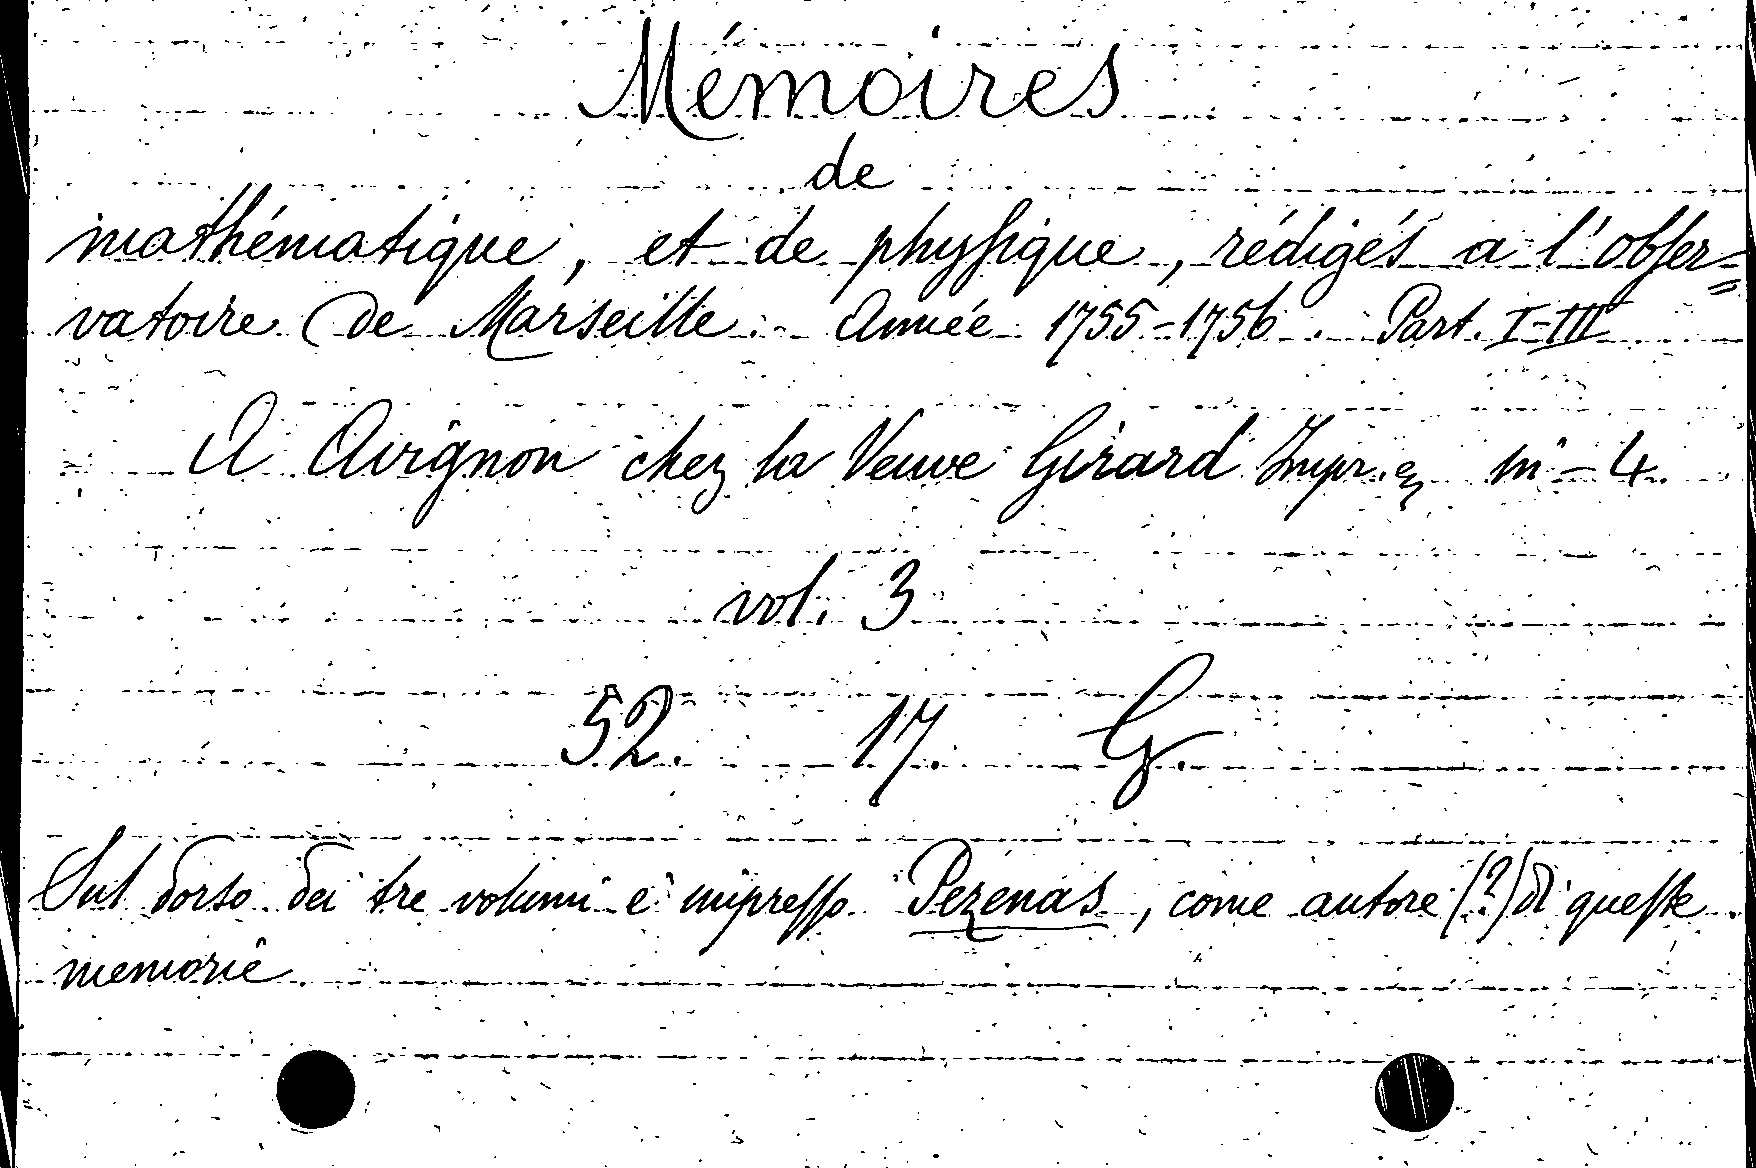 Mémoires
de
mathématique, et de physique, rédigés a l'obser=
vatoire de Marseille. Année 1755-1756. Part. I-III
A Avignon chez la Veuve Girard Impr. in-4.
vol. 3
52. 17. G.
Sul dorso dei tre volumi è impresso Pezenas, come autore (?) di queste
memorie.